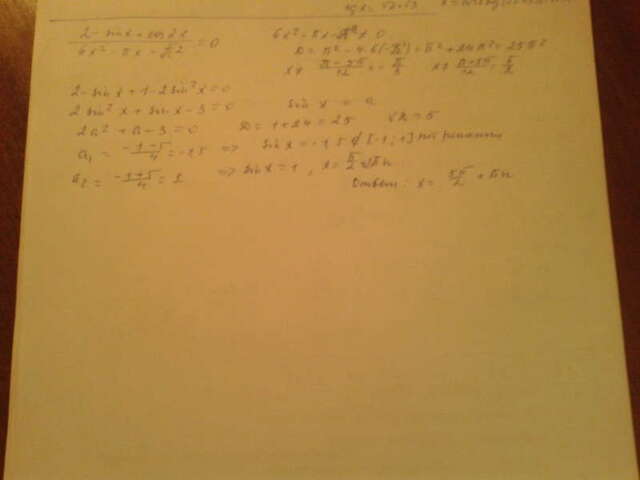 2 - sin x + cos 2x / 6x² - πx - π² = 0
6x² - πx - π² ≠ 0
D = π² - 4·6(-π²) = π² + 24π² = 25π²
x ≠ π - 5π / 12 = - π/3 x ≠ π + 5π / 12 = π/2
2 - sin x + 1 - 2 sin² x = 0
2 sin² x + sin x - 3 = 0 sin x = a
2a² + a - 3 = 0 D = 1 + 24 = 25 √D = 5
a₁ = -1-5 / 4 = -1,5 => sin x = -1,5 ∉ [-1; 1] нет решения
a₂ = -1+5 / 4 = 1 => sin x = 1, x = π/2 + 2πn
Ответ: x = 5π/2 + πn